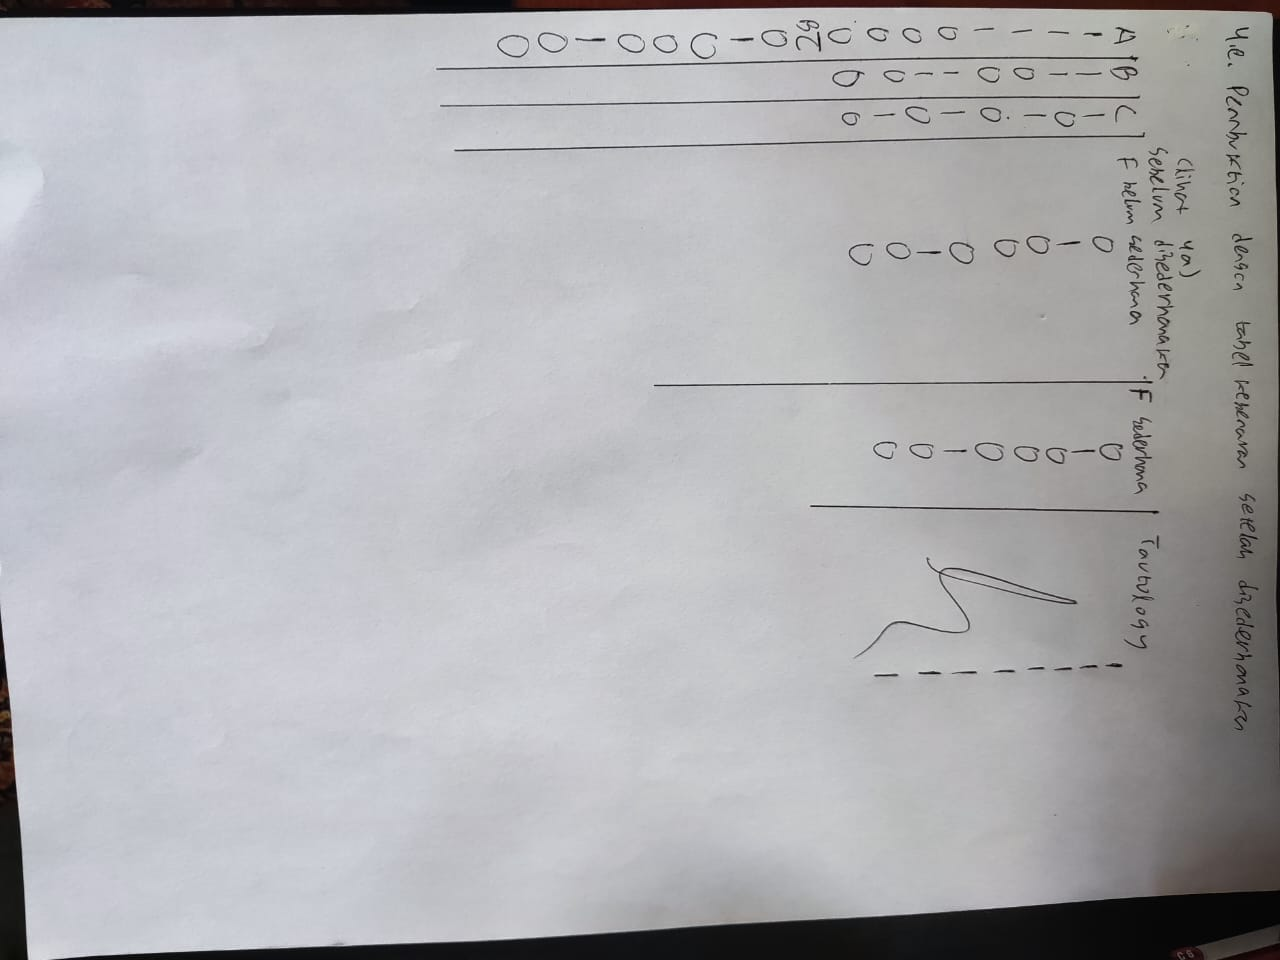 4.e. Pembuktian dengan tabel kebenaran setelah disederhanakan
(lihat 4a)
sebelum disederhanakan
A B C F belum sederhana F sederhana Tautology
1 1 1 0 0 1
1 1 0 1 1 1
1 0 1 0 0 1
1 0 0 0 0 1
0 1 1 0 0 1
0 1 0 1 1 1
0 0 1 0 0 1
0 0 0 0 0 1
0
1
0
0
0
1
0
0